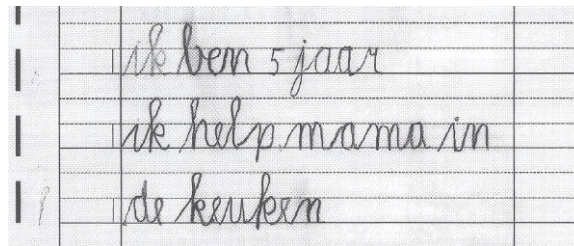 ik ben 5 jaar
ik help mama in
de keuken